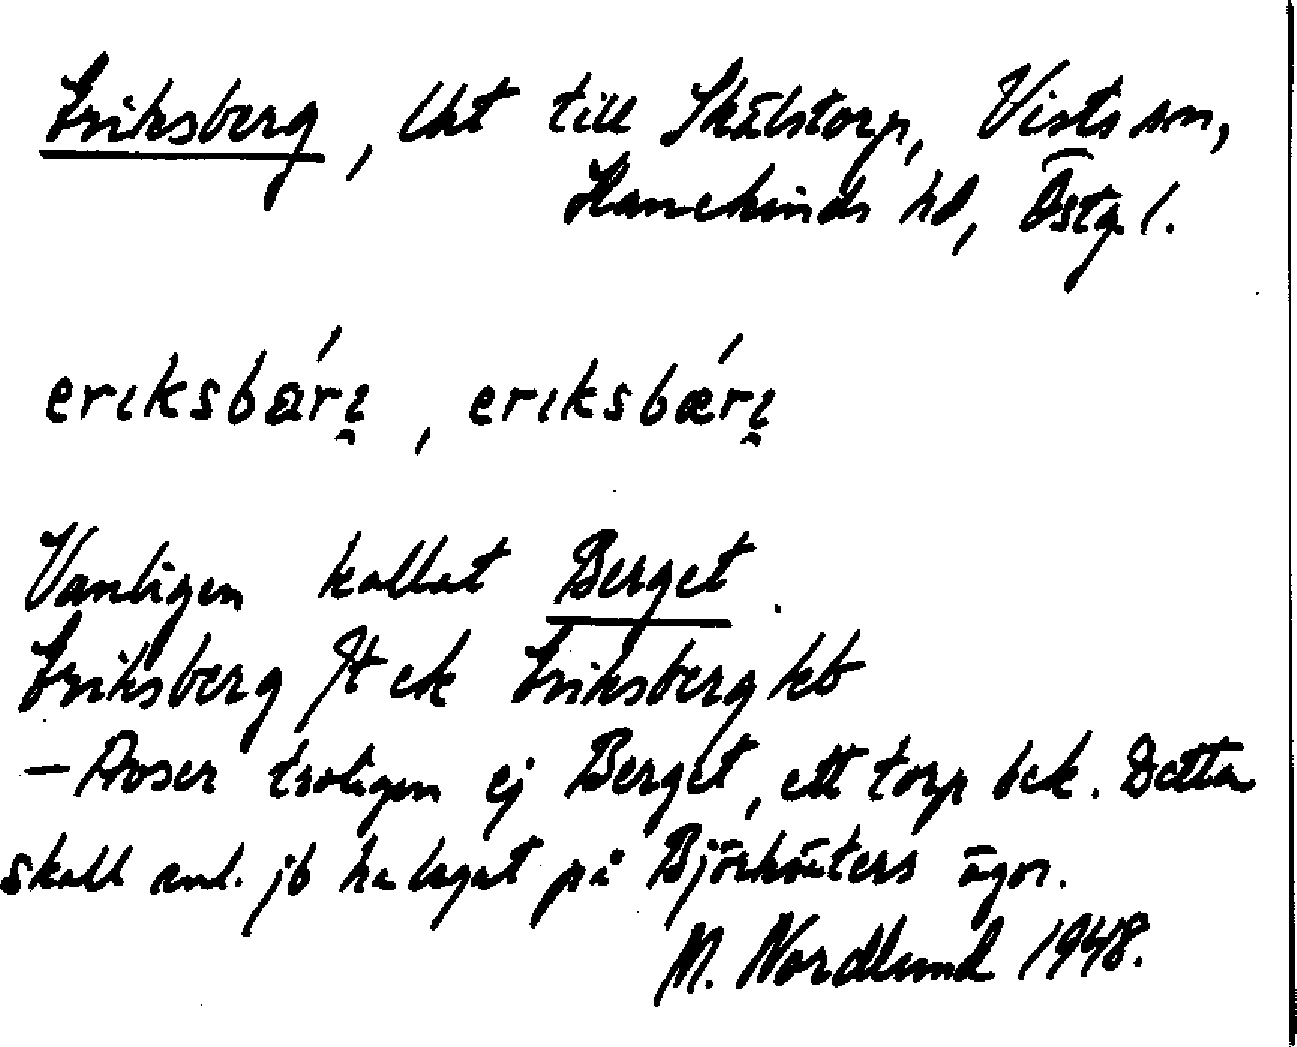 Eriksberg, lht till Skälstorp, Vists sn,
Hanekinds hd, Östg. l.
eriksbár̨ı̯, eriksbǽrı̯
Vanligen kallat Berget.
Eriksberg Jt ek Eriksberg kb
— Avser troligen ej Berget, ett torp bek. Detta
skall enl. jb ha legat på Björkhäters ägor.
M. Nordlund 1948.